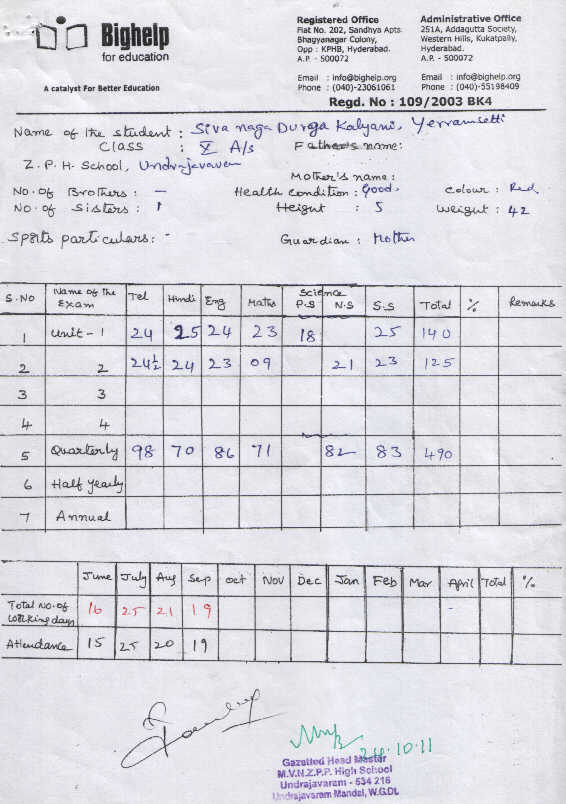 Bighelp
for education
A catalyst For Better Education
Registered Office
Flat No. 202, Sandhya Apts
Bhagyanagar Colony,
Opp : KPHB, Hyderabad.
A.P. - 500072
Email : info@bighelp.org
Phone : (040)-23061061
Administrative Office
251A, Addagutta Society,
Western Hills, Kukatpally,
Hyderabad.
A.P. - 500072
Email : info@bighelp.org
Phone : (040)-55198409
Regd. No : 109/2003 BK4
Name of the student : Siva naga Durga Kalyani, Yerramsetti
Class : X A/s Father's name:
Z.P.H. School, Undrajavaram
Mother's name :
No. of Brothers : - Health Condition : Good, Colour : Red
No. of Sisters : 1 Height : 5 Weight : 42
Sports particulars : - Guardian : Mother
S.No Name of the Exam Tel Hindi Eng Maths Science P.S N.S S.S Total % Remarks
1 Unit - 1 24 25 24 23 18 25 140
2 2 24½ 24 23 09 21 23 125
3 3
4 4
5 Quarterly 98 70 86 71 82 83 490
6 Half Yearly
7 Annual
June July Aug Sep Oct Nov Dec Jan Feb Mar April Total %
Total No. of working days 16 25 21 19 -
Attendance 15 25 20 19
24.10.11
Gazetted Head Master
M.V.N.Z.P.P. High School
Undrajavaram - 534 216
Undrajavaram Mandal, W.G.Dt.